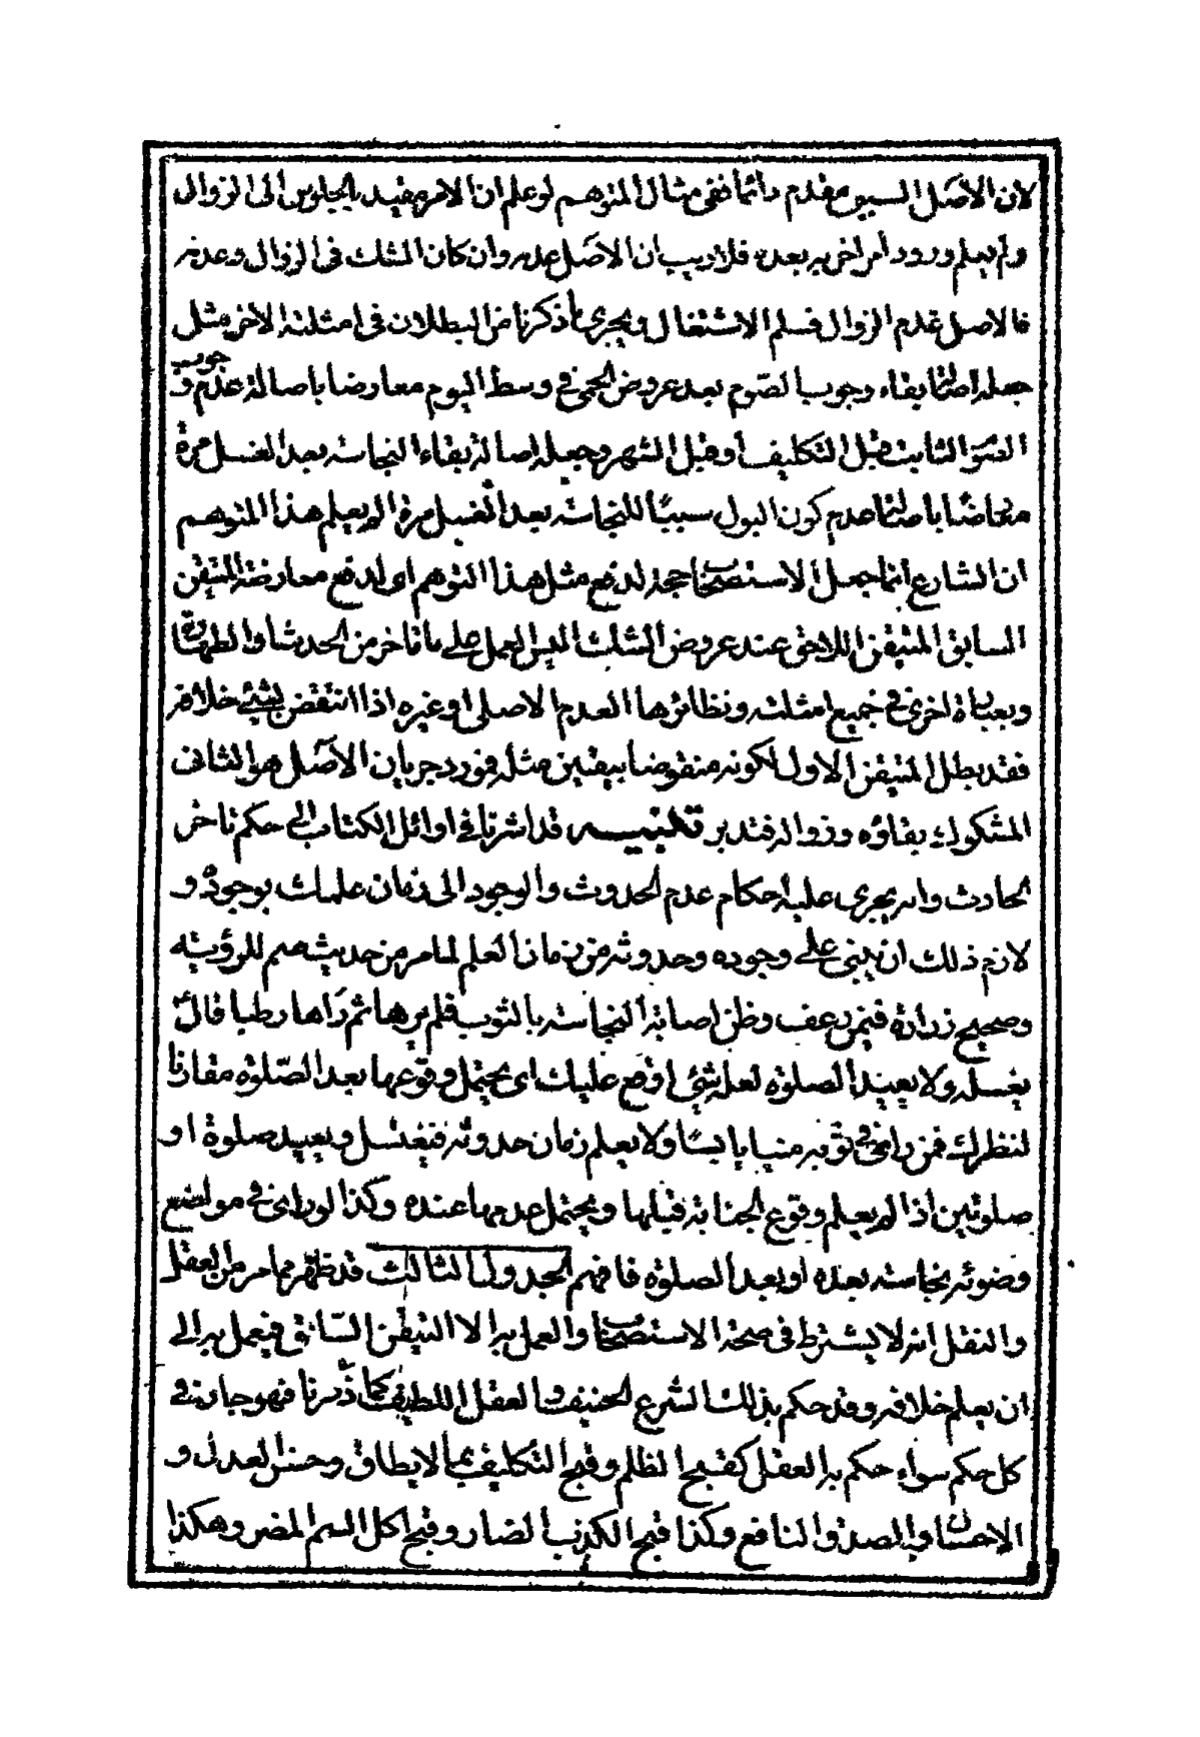 لان الاصل السببى مقدم دائما ففى مثال المتوهم لو علم ان الامر مقيد بالجلوس الى الزوال
ولم يعلم ورود امر اخر به بعده فلا ريب ان الاصل عدمه وان كان الشك فى الزوال وعدمه
فالاصل عدم الزوال فسلم الاشتغال ويجرى ما ذكرنا من البطلان فى امثلته الاخر مثل
جعله اصالة بقاء وجوب الصوم بعد عروض الحمى فى وسط اليوم معارضا باصالة عدم وجوب
الثابت قبل التكليف او قبل الشهر وجعله اصالة بقاء النجاسة بعد الغسل مرة
معارضا باصالة عدم كون البول سببا للنجاسة بعد الغسل مرة الم يعلم هذا المتوهم
ان الشارع انما جعل الاستصحاب حجة لدفع مثل هذا التوهم اى لدفع معارضة المتيقن
السابق المتيقن اللاحق عند عروض الشك اليس العمل على ما تاخر من الحدث او الطهارة
وبعبارة اخرى فى جميع امثلته ونظائرها العدم الاصلى او غيره اذا انتقض بشئ خلافه
فقد بطل المتيقن الاول لكونه منقوضا بيقين مثله فمورد جريان الاصل هو الثانى
المشكوك بقاؤه وزواله فتدبر تنبيه قد اشرنا فى اوائل الكتاب الى حكم تاخر
الحادث وانه يجرى عليه احكام عدم الحدوث والوجود الى زمان علمك بوجوده و
لازم ذلك ان يبنى على وجوده وحدوثه من زمان العلم لما مر من حديث صم للرؤية
وصحيح زرارة فيمن رعف وظن اصابة النجاسة بالثوب فلم يرها ثم راها رطبا قال
يغسله ولا يعيد الصلوة لعله شئ اوقع عليك اى يحتمل وقوعها بعد الصلوة مقارنا
لنظرك فمن راى فى ثوبه منيا يابسا ولا يعلم زمان حدوثه فيغتسل ويعيد صلوة او
صلوتين اذا لم يعلم وقوع الجنابة قبلها ويحتمل عدمها عنده وكذا لو راى فى مواضع
وضوئه نجاسته بعده او بعد الصلوة فافهم الجدول الثالث قد ظهر مما مر من العقل
والنقل انه لا يشترط فى صحة الاستصحاب والعمل به الا التيقن السابق فيعمل به الى
ان يعلم خلافه وقد حكم بذلك الشرع الحنيف والعقل اللطيف كما ذكرنا فهو جار فى
كل حكم سواء حكم به العقل كقبح الظلم وقبح التكليف بما لا يطاق وحسن العدل و
الاحسان والصدق النافع وكذا قبح الكذب الضار وقبح اكل السم المضر وهكذا